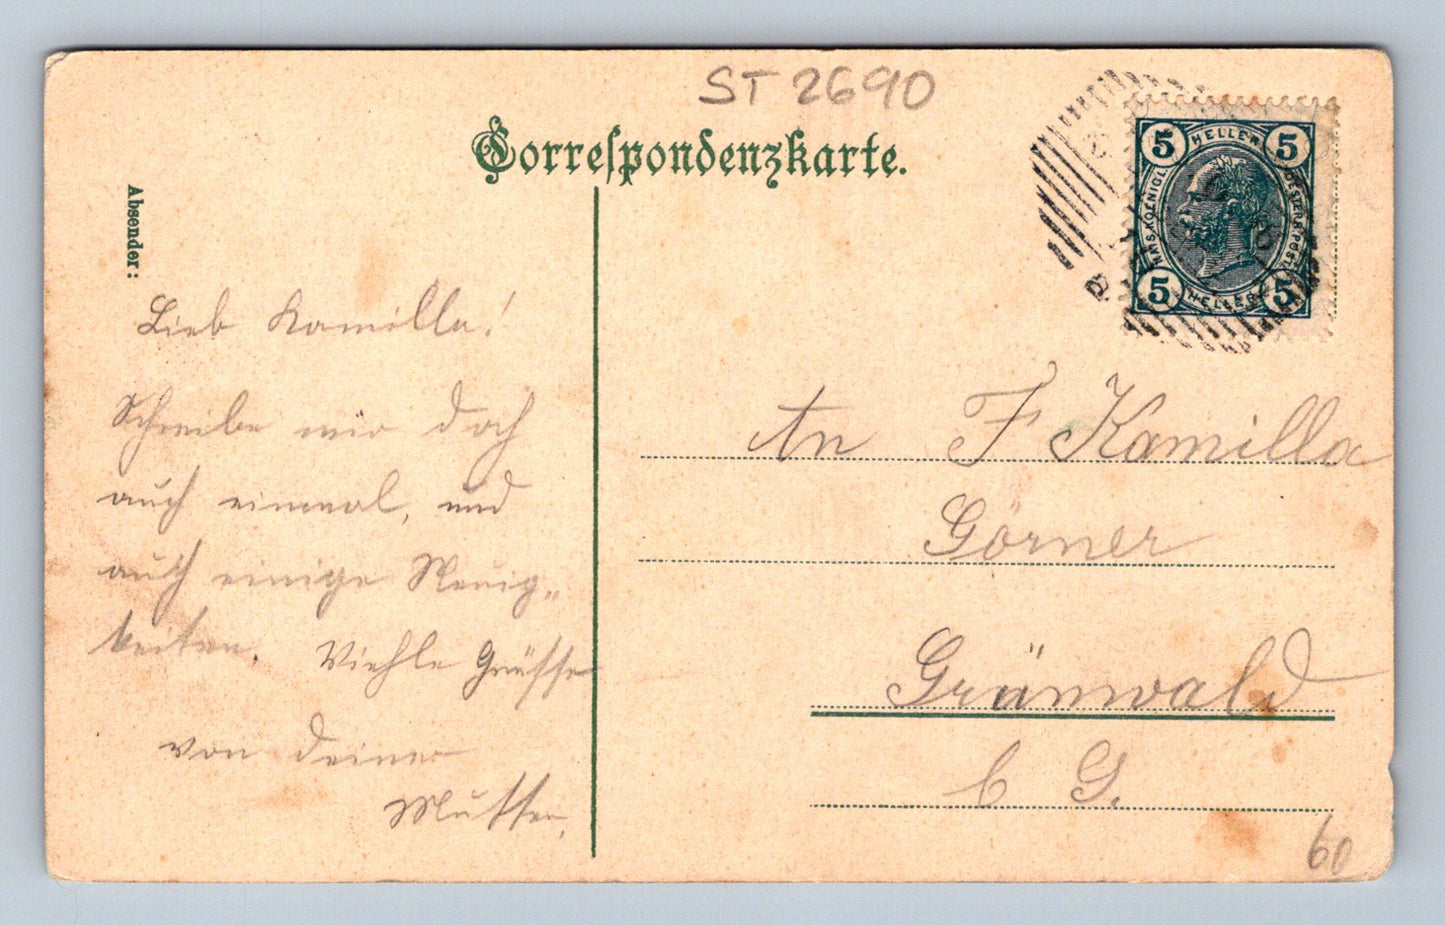 ST 2690
Correspondenzkarte.
Absender:
5 HELLER 5
KAIS. KOENIGL. OESTERR. POST
5 HELLER 5
Lieb Kamilla!
Schreibe mir doch
auch einmal, und
auch einige Neuig„
keiten. Viehle Grüsse
von deiner
Mutter,
An F Kamilla
Görner
Grünwald
b G.
60